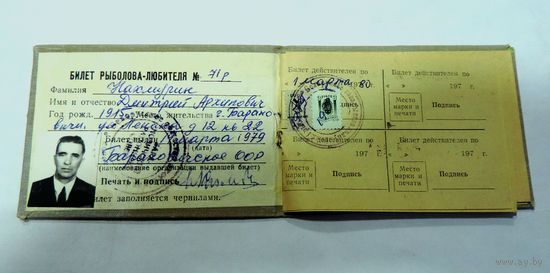 БИЛЕТ РЫБОЛОВА-ЛЮБИТЕЛЯ № 71 р
Фамилия
Имя и отчество Дмитрий Архипович
Год рожд. 1917 Место жительства г. Барано-
вичи ул Ленина д 12 кв 22
Билет выдан 1 марта 1979
(дата)
Барановичское ООР
(наименование организации выдавшей билет)
Печать и подпись
Билет заполняется чернилами.
Билет действителен по
1 марта 80
Подпись
Билет действителен по
" " 197 г.
Место марки и печати
Подпись
Билет действителен по
" " 197 г.
Место марки и печати
Подпись
Билет действителен по
" " 197 г.
Место марки и печати
Подпись
www.ay.by